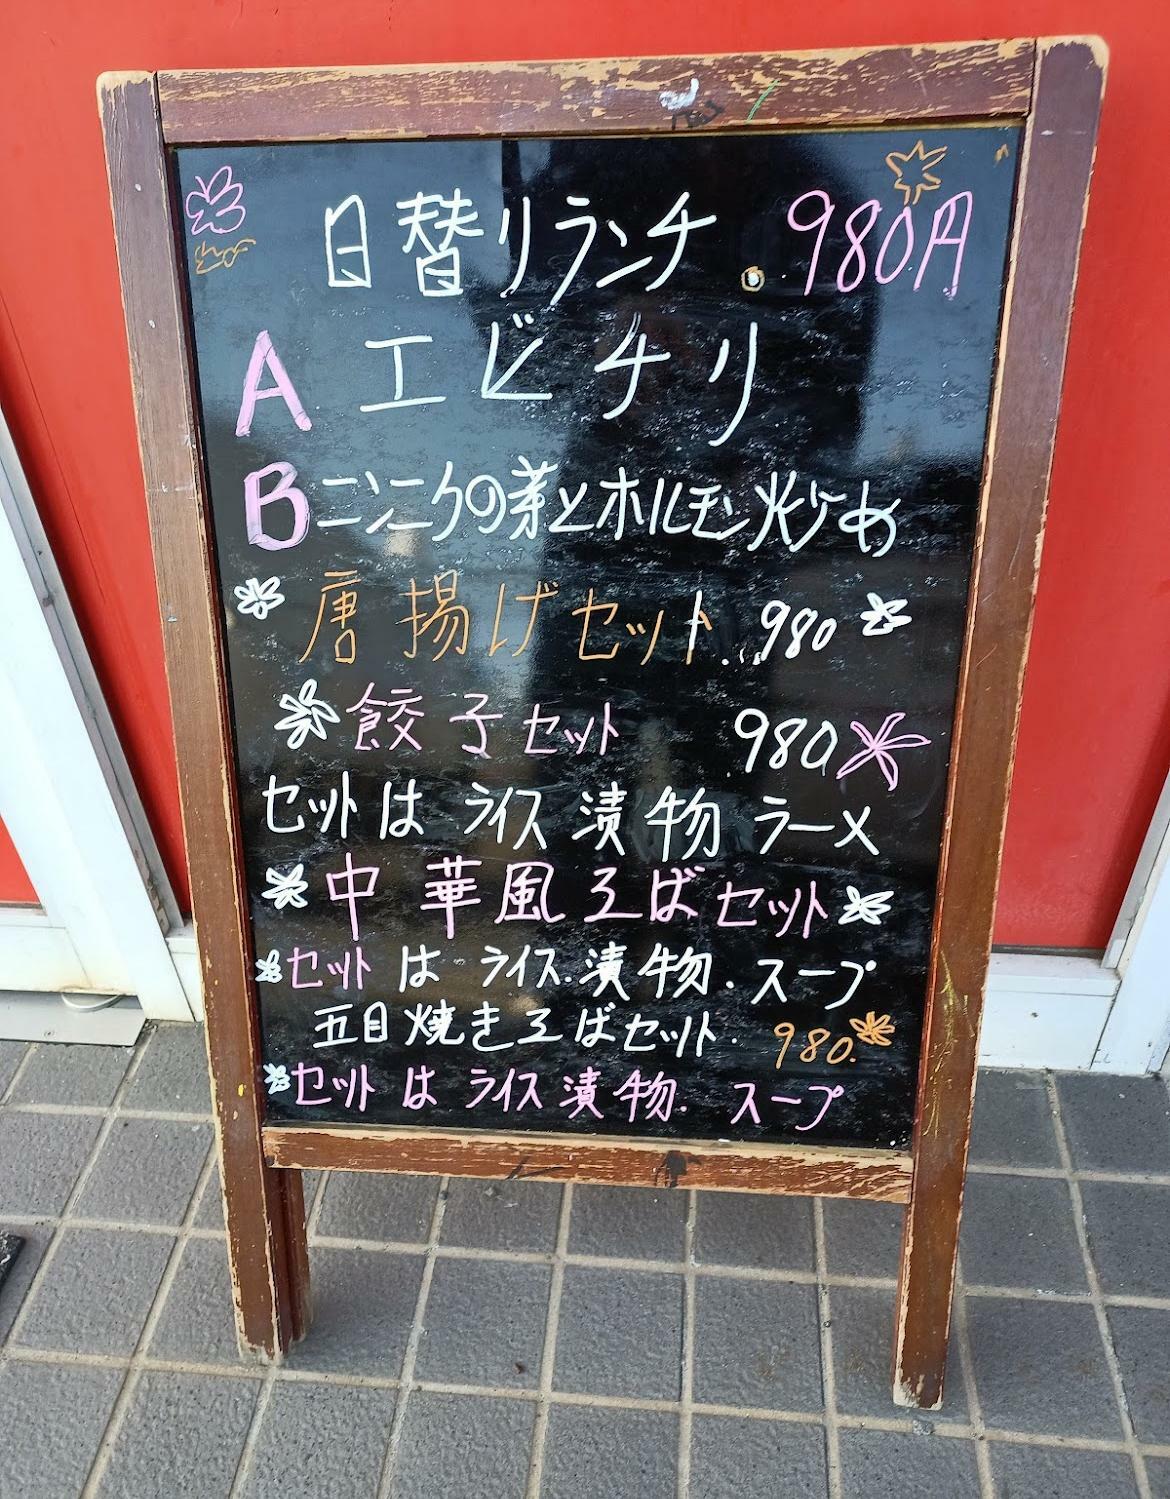 日替りランチ。980円
A エビチリ
B ニンニクの芽とホルモン炒め
唐揚げセット...980
餃子セット 980
セットは ライス 漬物 ラーメ
中華風そばセット
セットは ライス.漬物.スープ
五目焼きそばセット. 980.
セットは ライス 漬物. スープ